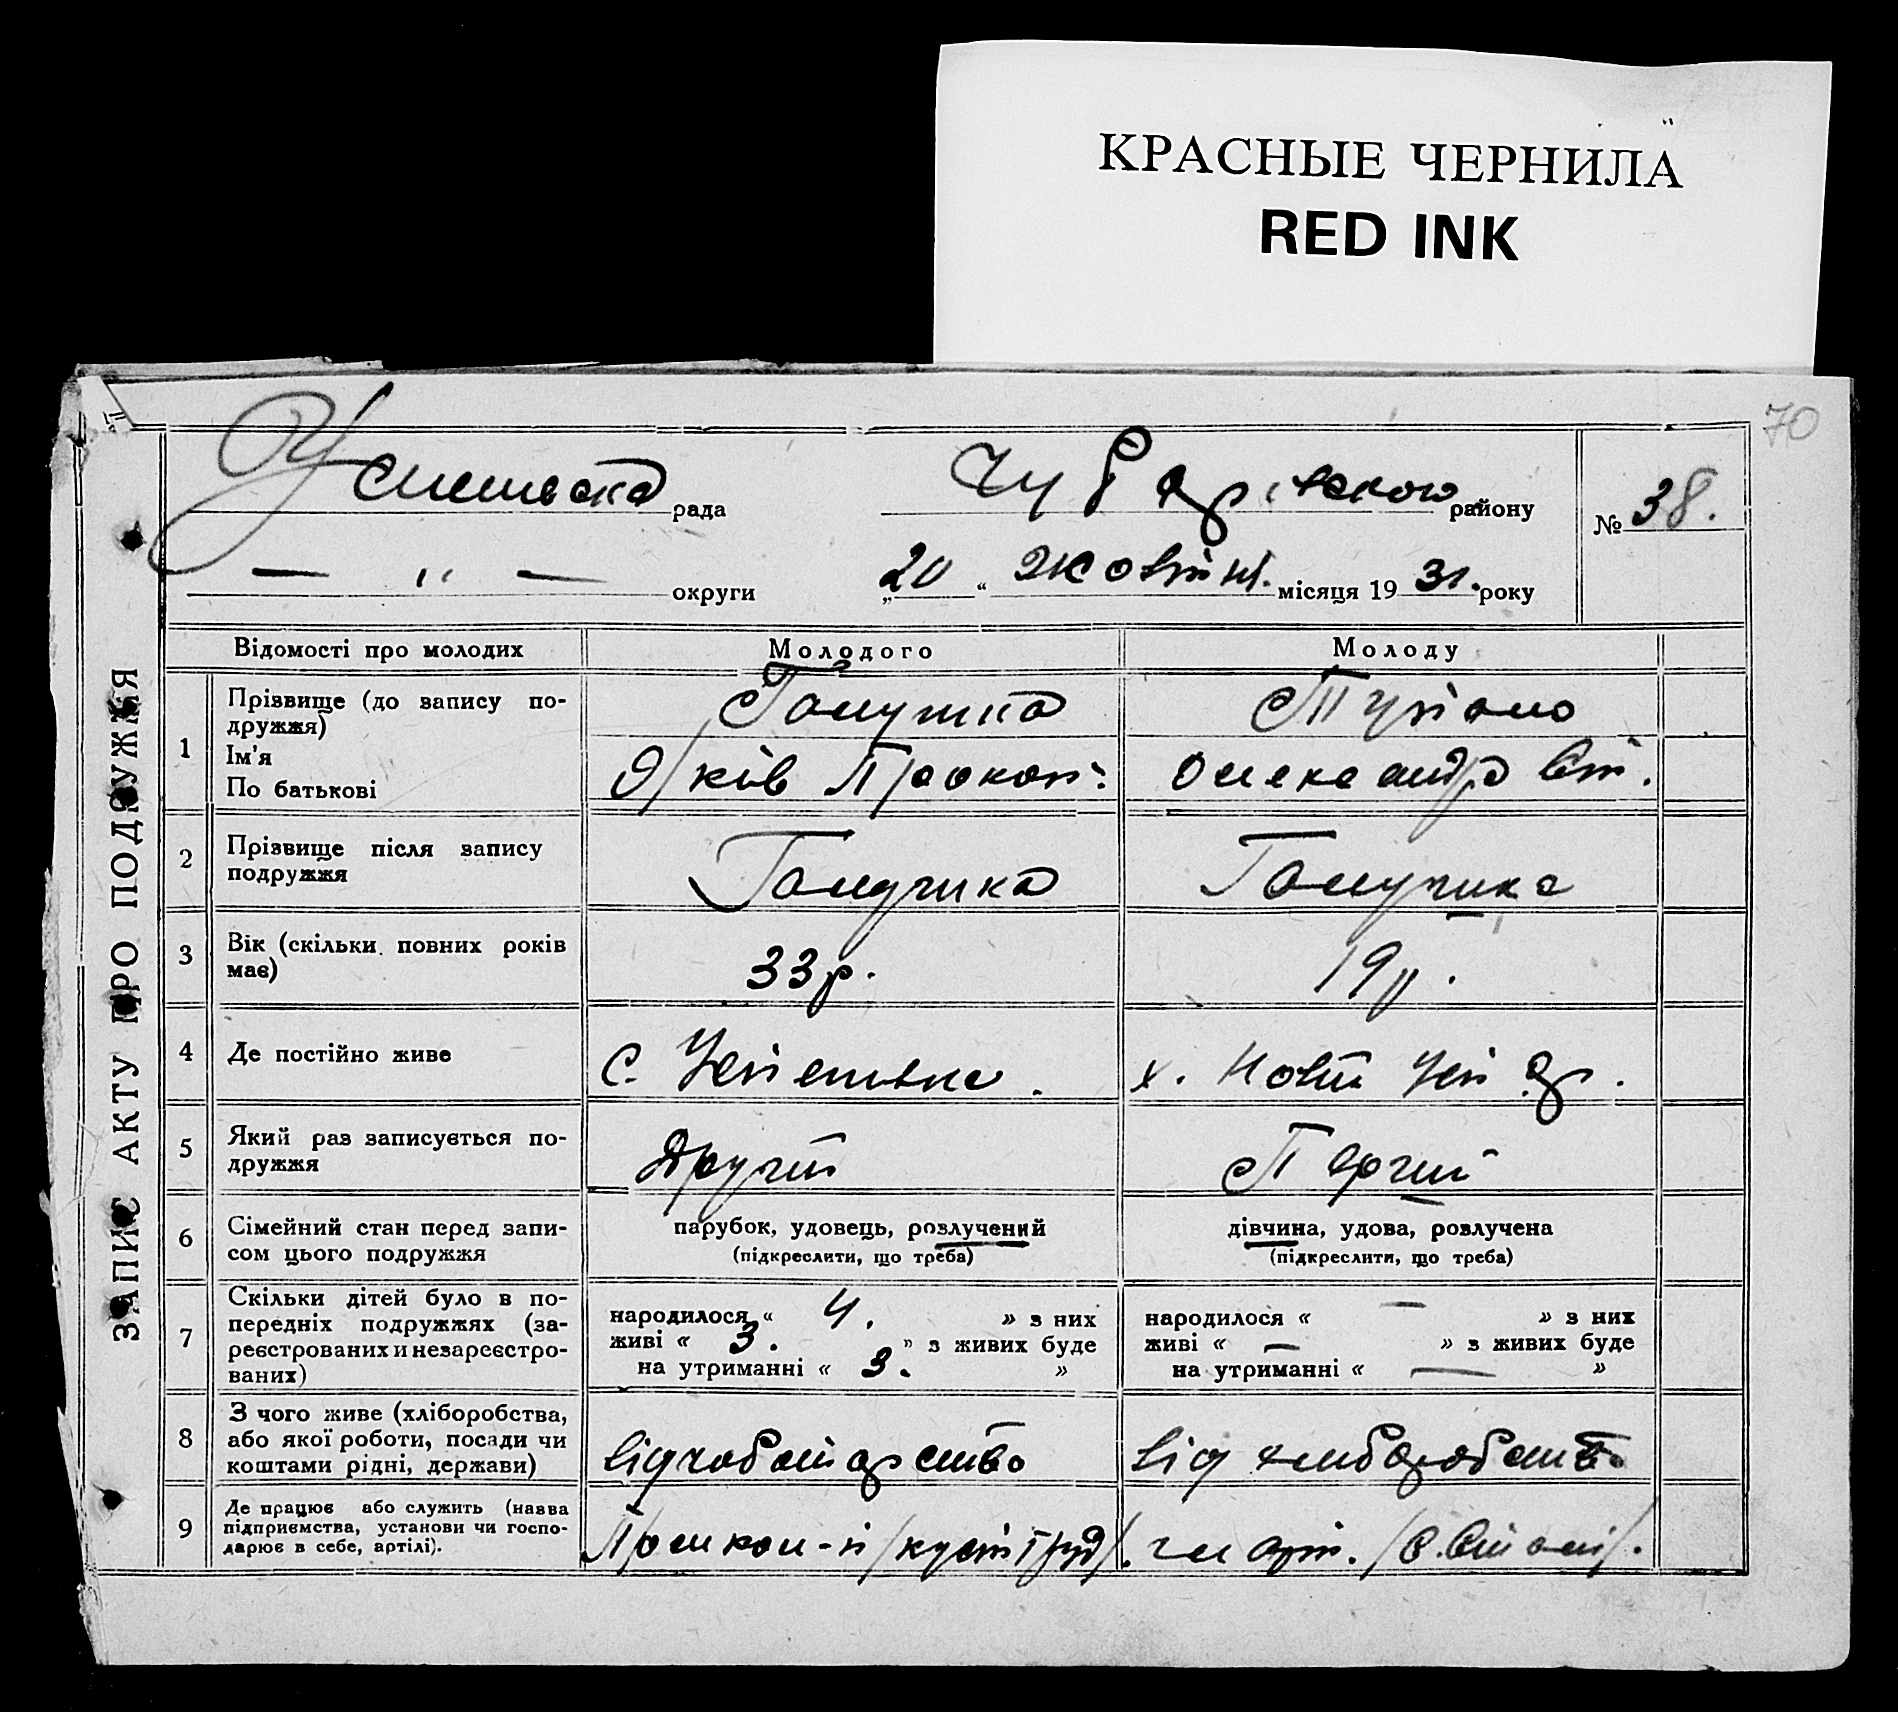 КРАСНЫЕ ЧЕРНИЛА
RED INK
70
рада
Чубарівського району
№ 38.
— " — округи
„20“ Жовтн. місяця 1931. року
ЗАПИС АКТУ ПРО ПОДРУЖЖЯ
Відомості про молодих
Молодого
Молоду
1
Прізвище (до запису по-
дружжя)
Ім'я
По батькові
Галушка
Яків Прокоп.
Олександра
2
Прізвище після запису
подружжя
Галушка
Галушка
3
Вік (скільки повних років
має)
33 р.
19 р.
4
Де постійно живе
с.
х. Новий
5
Який раз записується по-
дружжя
Другий
Перший
6
Сімейний стан перед запи-
сом цього подружжя
парубок, удовець, розлучений
(підкреслити, що треба)
дівчина, удова, розлучена
(підкреслити, що треба)
7
Скільки дітей було в по-
передніх подружжях (за-
реєстрованих и незареєстро-
ваних)
народилося « 4. » з них
живі « 3. » з живих буде
на утриманні « 3. »
народилося « — » з них
живі « — » з живих буде
на утриманні « — »
8
З чого живе (хліборобства,
або якої роботи, посади чи
коштами рідні, держави)
від чоботарство
від хліборобство
9
Де працює або служить (назва
підприємства, установи чи госпо-
дарює в себе, артілі).